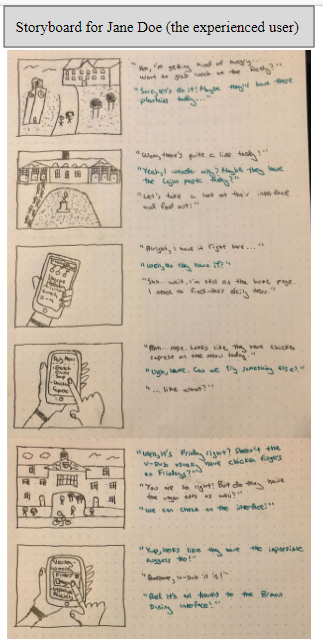 Storyboard for Jane Doe (the experienced user)
"Hm, I'm getting kind of hungry...
want to grab lunch at the Ratty?"
"Sure, let's do it! Maybe they'll have those
today..."
"Woah, there's quite a line today!"
"Yeah, I wonder why? Maybe they have
the Cajun pasta today?"
"Let's take a look at their interface
and find out!"
"Alright, I have it right here..."
"Well, do they have it?"
"Shh.. wait. I'm still on the home page.
I need to find their daily menu."
"Ahh... nope. Looks like they have chicken
caprese on the menu today."
"Ugh, lame. Can we try something else?"
"... like what?"
Daily Menu
French
Soup
- Chicken
Caprese
"Well, it's Friday right? Doesn't the
V-Dub usually have chicken fingers
on Fridays?"
"You are so right! But do they have
the vegan ones as well?"
"We can check on the interface!"
"Yup, looks like they have the impossible
nuggets too!"
"Awesome, V-Dub it is!"
"And it's all thanks to the Brown
Dining interface!"